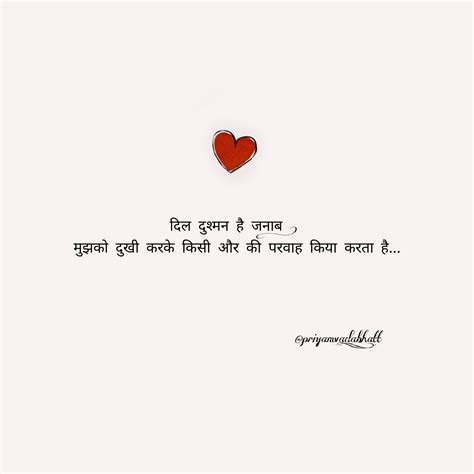 दिल दुश्मन है जनाब
मुझको दुखी करके किसी और की परवाह किया करता है...
@priyamvadabhatt